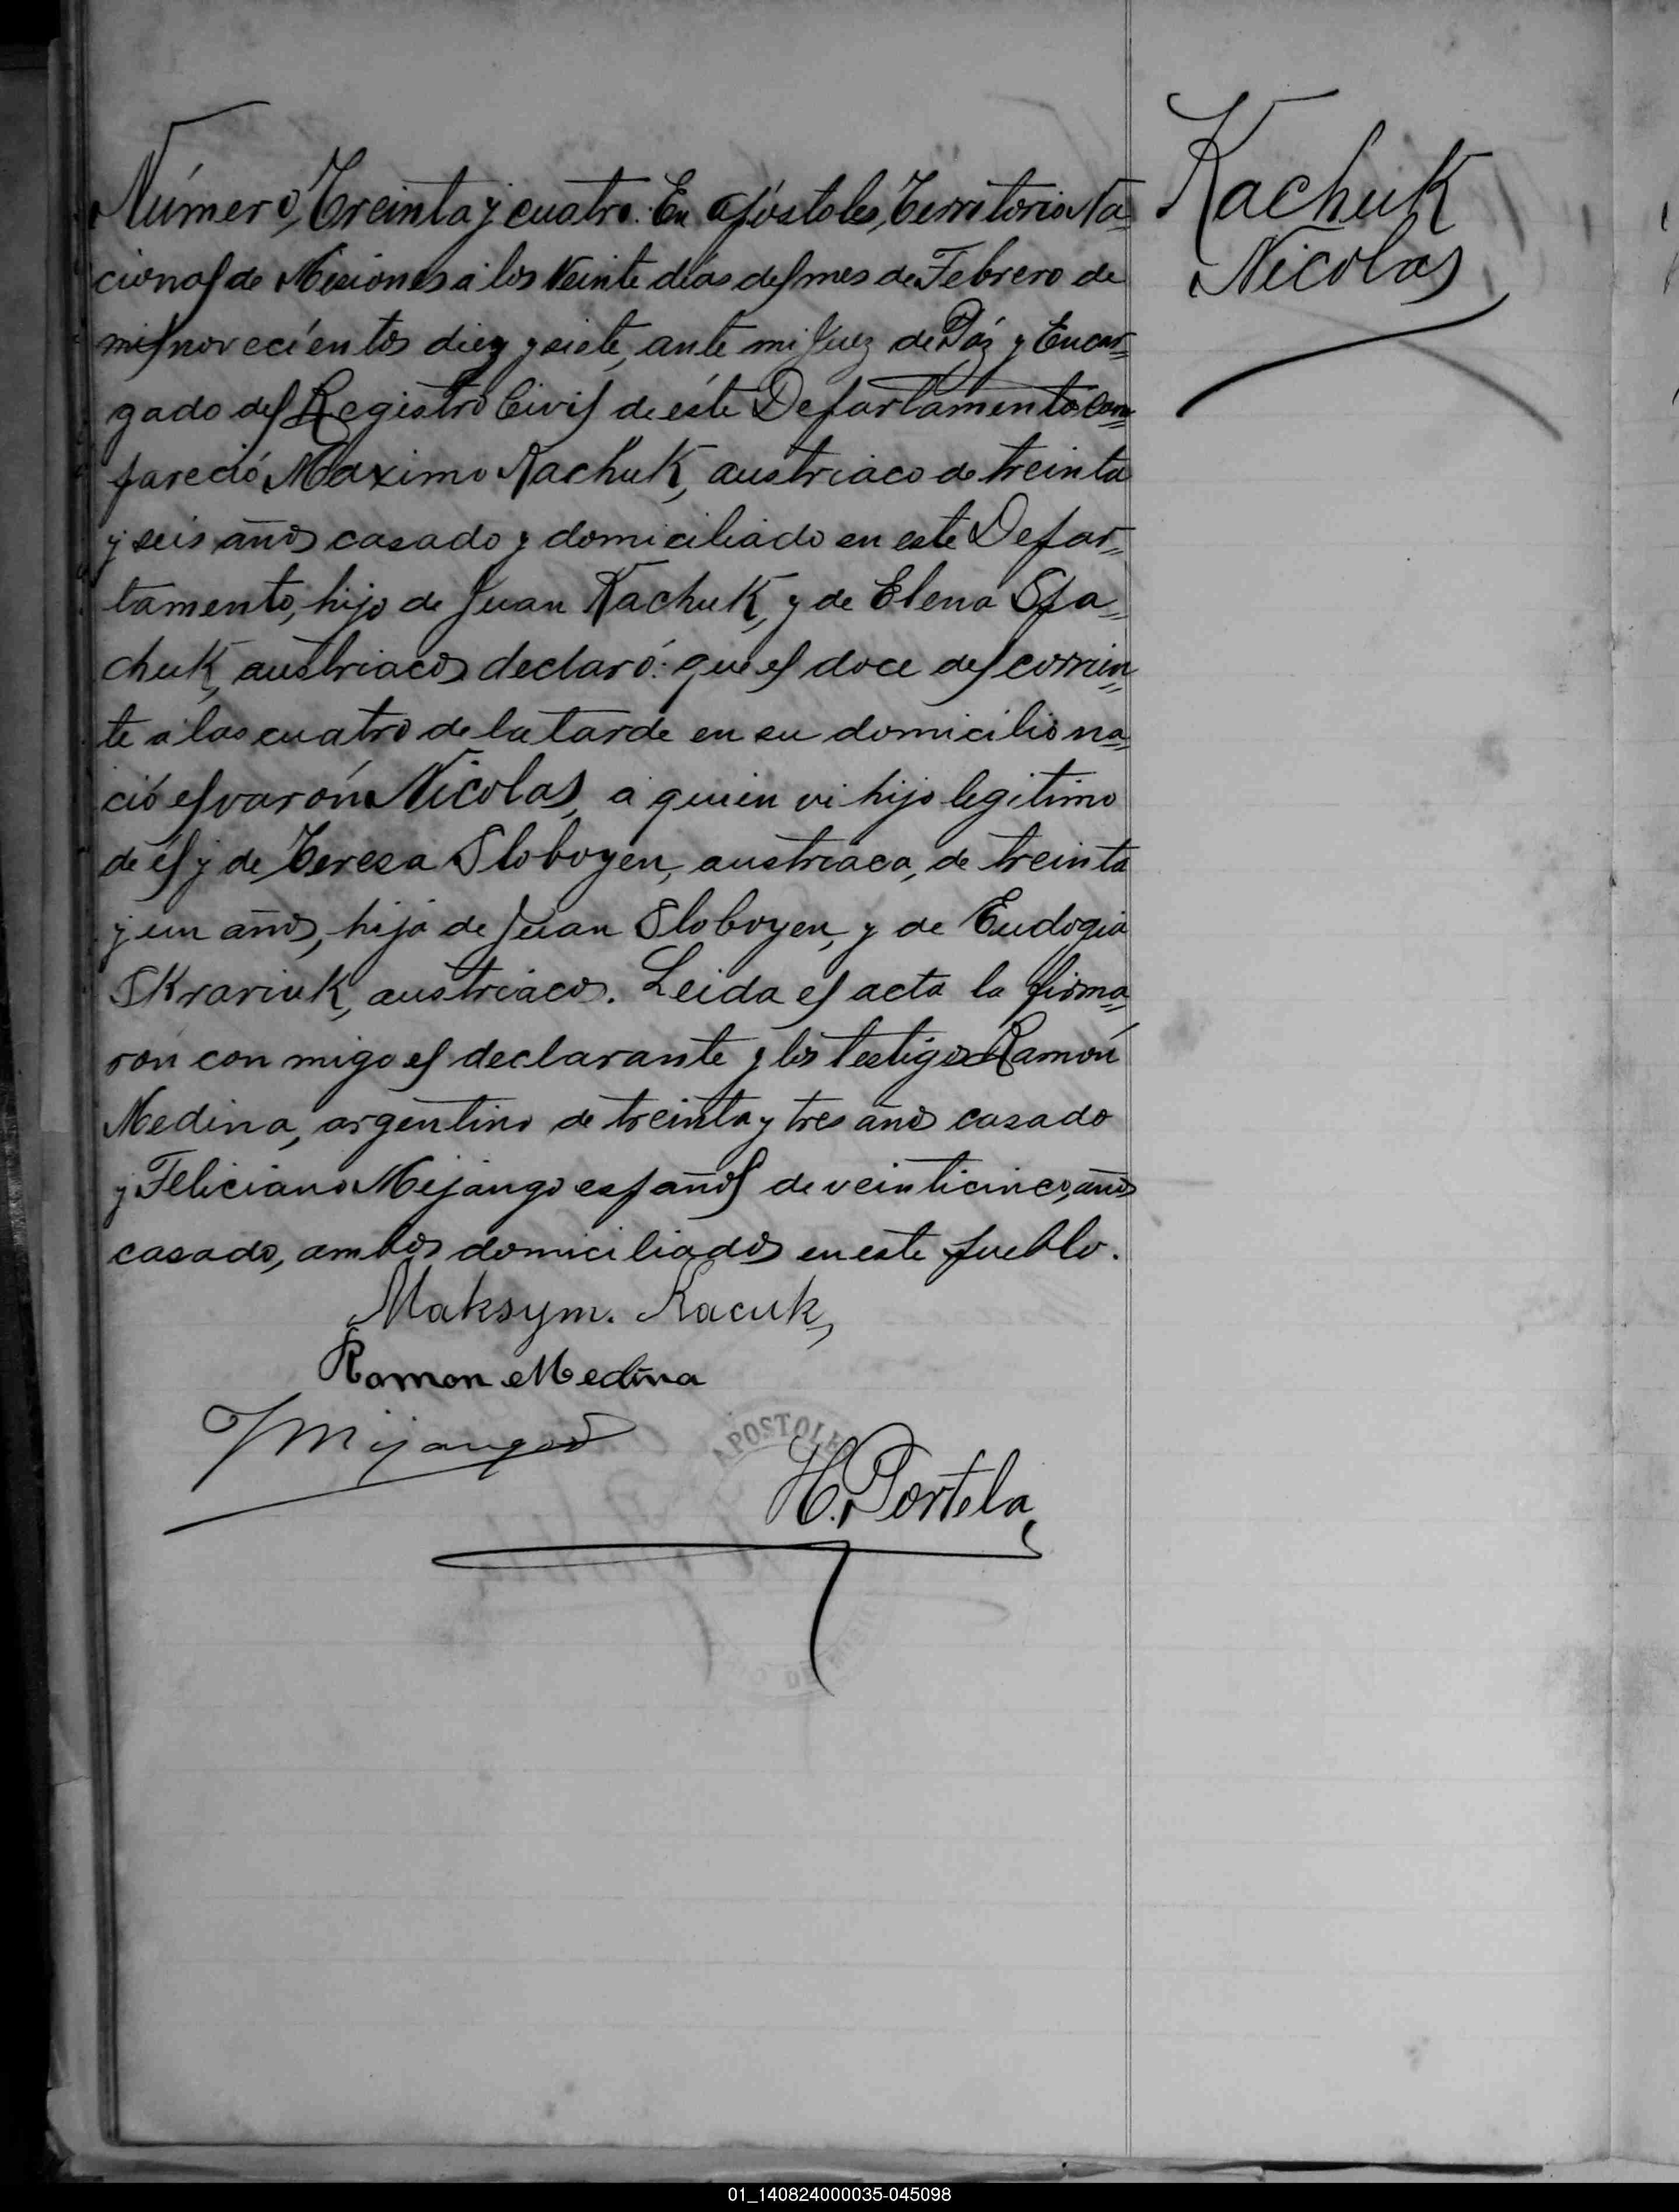 Kachuk
Nicolas
Número, Treinta y cuatro. En Apóstoles, Territorio Na=
cional de Misiones á los Veinte dias del mes de Febrero de
mil novecientos diez y siete, ante mi Juez de Páz y Encar=
gado del Registro Civil de éste Departamento com=
pareció Maximo Kachuk, austriaco de treinta
y seis años casado y domiciliado en este Depar=
tamento, hijo de Juan Kachuk, y de Elena Spa=
chuk, austriacos declaró: que el doce del corrien=
te a las cuatro de la tarde en su domicilio na=
ció el varón Nicolas, a quien vi hijo legitimo
de él y de Teresa Sloboyen, austriaca, de treinta
y un años, hija de Juan Sloboyen, y de Eudogia
Skrariuk, austriacos. Leida el acta la firma=
ron con migo el declarante y los testigos Ramón
Medina, argentino de treinta y tres años casado
y Feliciano Mejango español de veinticinco, años
casado, ambos domiciliados en este pueblo.
Maksym. Kacuk,
Ramon Medina
F Mijangos
APOSTOLES
H. Portela
DE
01_140824000035-045098